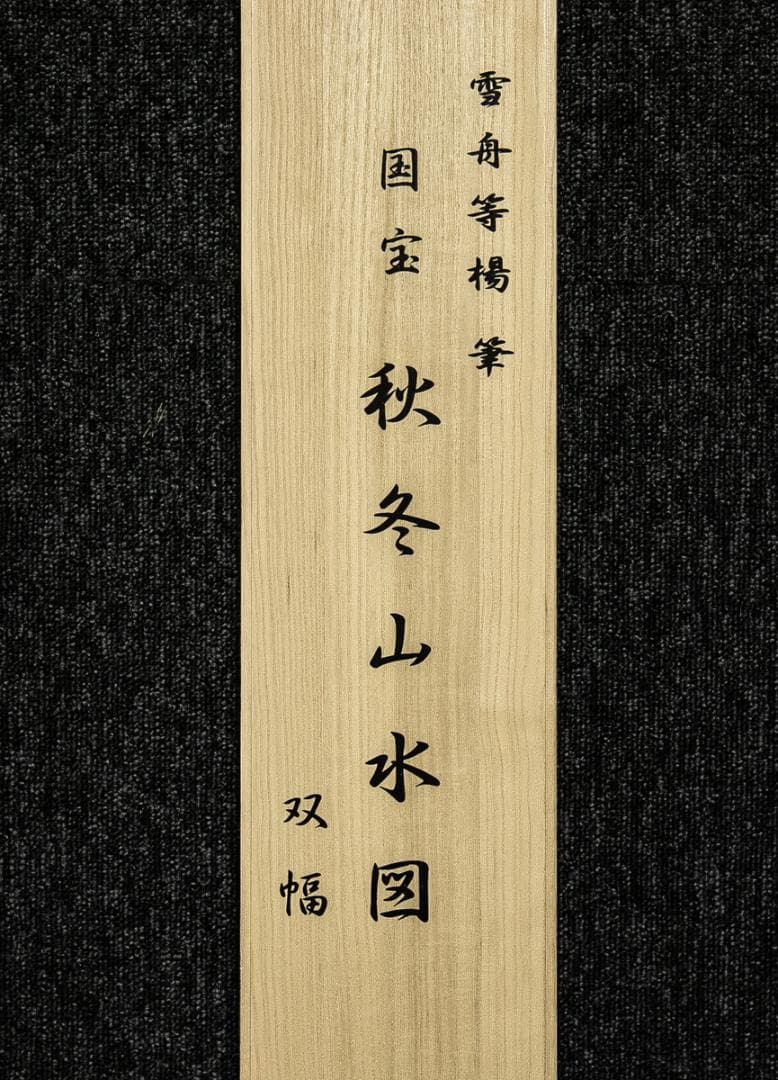 雪舟等楊 筆
国宝 秋冬山水図
双幅